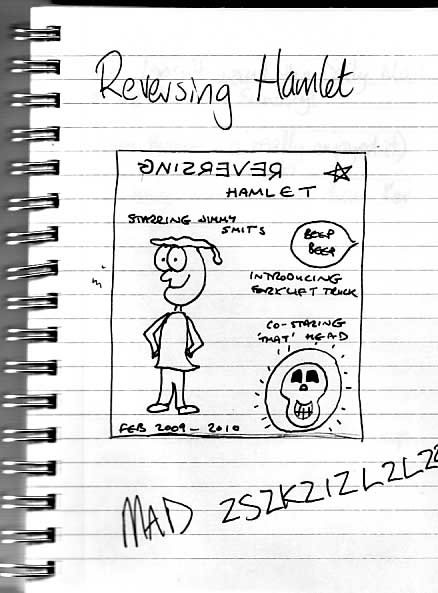 Reversing Hamlet
REVERSING
HAMLET
STARRING JIMMY
SMITS
BEEP
BEEP
INTRODUCING
FORKLIFT TRUCK
CO-STARING
'THAT' HEAD
FEB 2009 - 2010
MAD